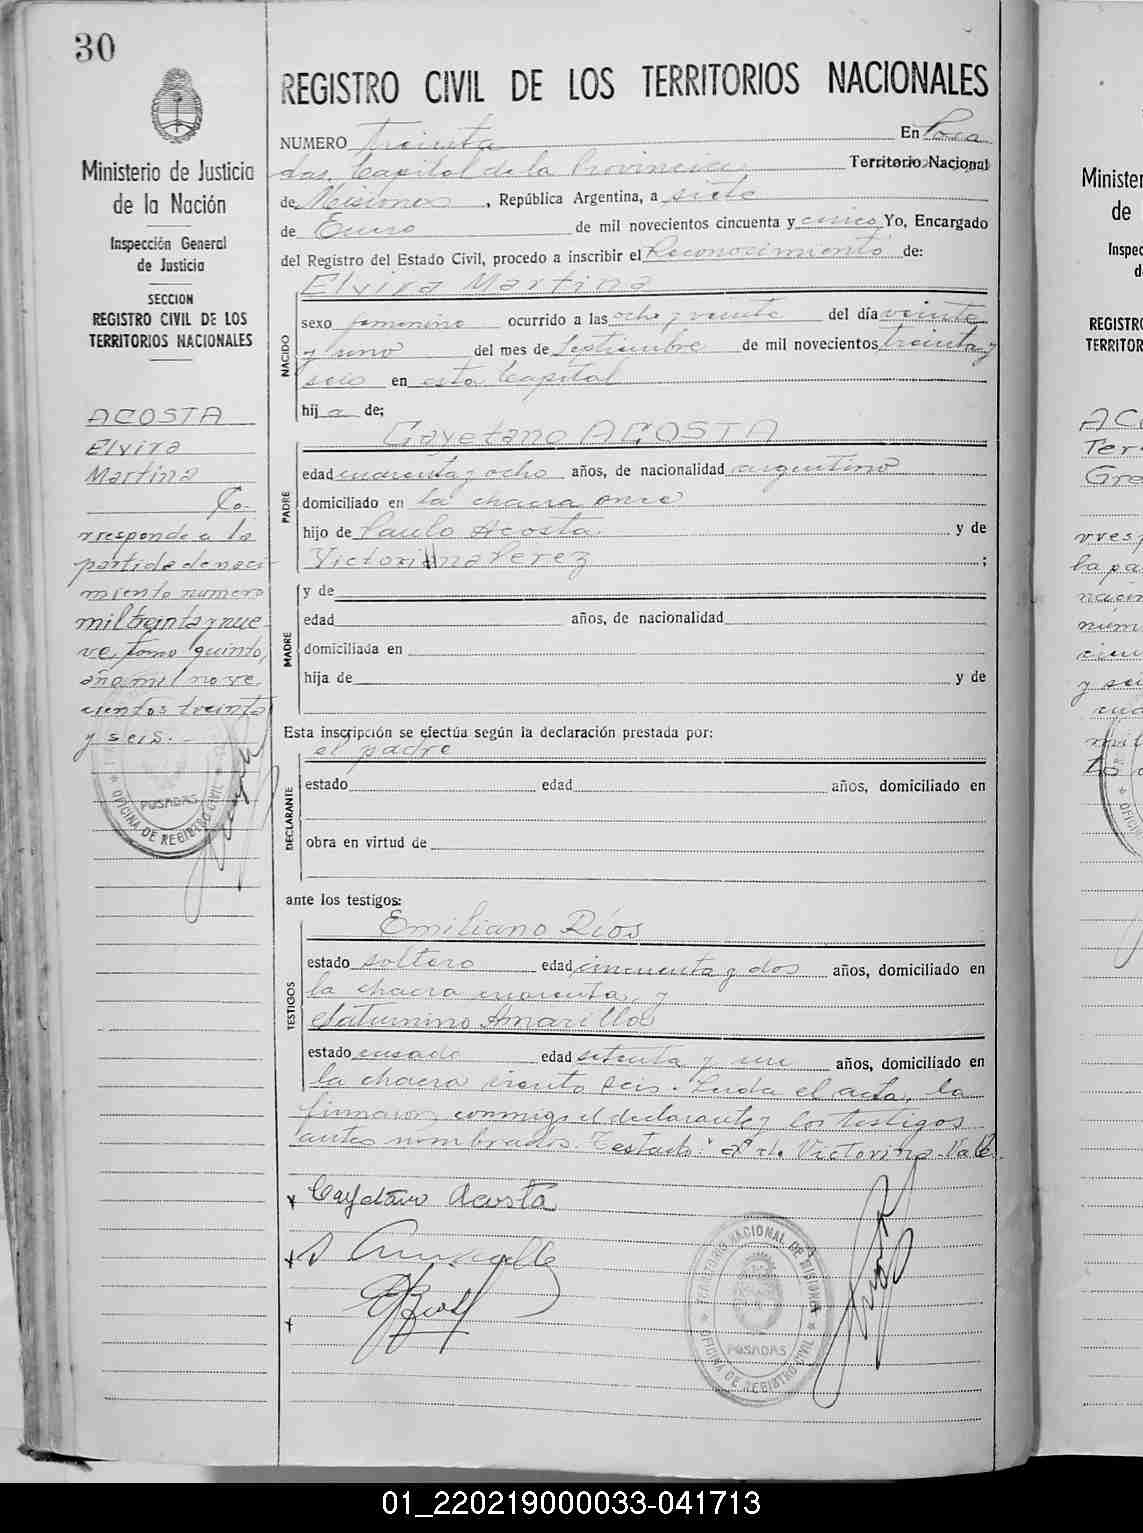 30
Ministerio de Justicia
de la Nación
Inspección General
de Justicia
SECCION
REGISTRO CIVIL DE LOS
TERRITORIOS NACIONALES
ACOSTA
Elvira
Martina
Co-
rresponde a la
partida de naci-
miento numero
mil treinta y nue
ve, tomo quinto,
año mil nove
cientos treinta
y seis.-
POSADAS
OFICINA DE REGISTRO CIVIL
REGISTRO CIVIL DE LOS TERRITORIOS NACIONALES
NUMERO Treinta En Posa
das, Capital de la Provincia Territorio Nacional
de Misiones, República Argentina, a siete
de Enero de mil novecientos cincuenta y cinco Yo, Encargado
del Registro del Estado Civil, procedo a inscribir el Reconocimiento de:
NACIDO
Elvira Martina
sexo femenino ocurrido a las ocho y veinte del día veinte
y uno del mes de Septiembre de mil novecientos treinta y
seis en esta Capital
hija de;
PADRE
Cayetano ACOSTA
edad cuarenta y ocho años, de nacionalidad argentino
domiciliado en la chacra once
hijo de Paulo Acosta y de
Victoriana Perez ;
MADRE
y de
edad años, de nacionalidad
domiciliada en
hija de y de
Esta inscripción se efectúa según la declaración prestada por:
el padre
DECLARANTE
estado edad años, domiciliado en
obra en virtud de
ante los testigos:
TESTIGOS
Emiliano Ríos
estado soltero edad cincuenta y dos años, domiciliado en
la chacra cuarenta, y
Saturnino Amarillo
estado casado edad setenta y un años, domiciliado en
la chacra ciento seis. Leida el acta, la
firmaron conmigo el declarante y los testigos
antes nombrados. Testado: de Victorina-Vale.
Cayetano Acosta
TERRITORIO NACIONAL DE MISIONES
POSADAS
OFICINA DE REGISTRO CIVIL
01_220219000033-041713